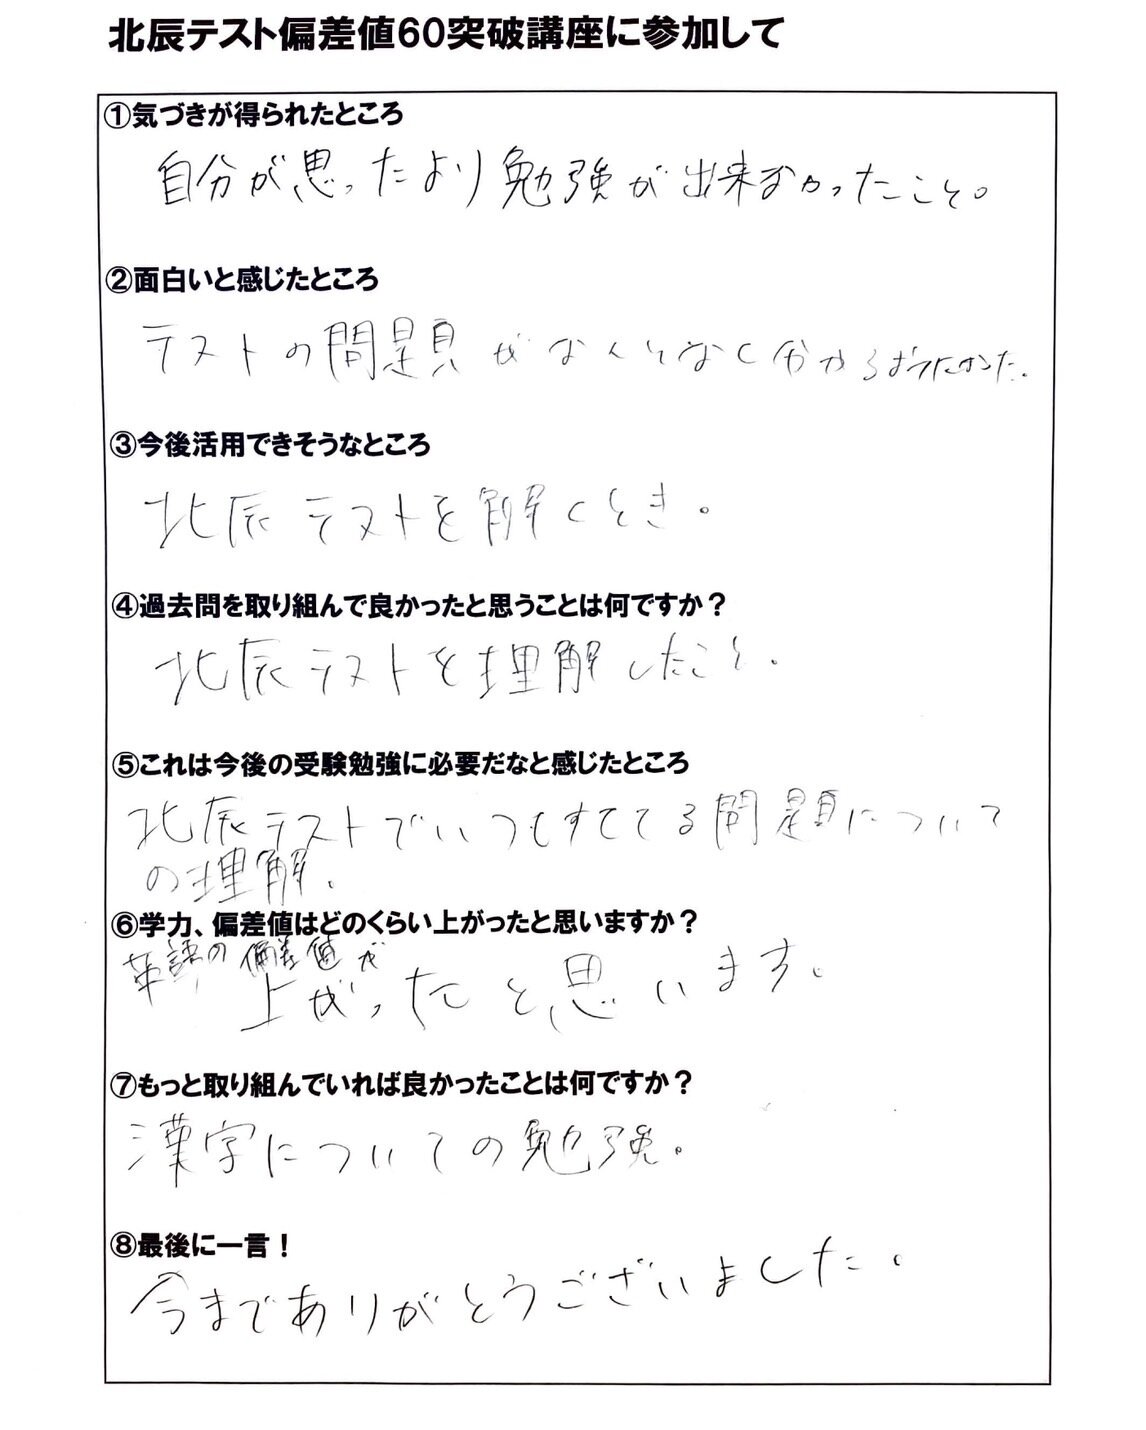 北辰テスト偏差値60突破講座に参加して
①気づきが得られたところ
自分が思ったより勉強が出来なかったこと。
②面白いと感じたところ
テストの問題がなんとなく分かるようになった。
③今後活用できそうなところ
北辰テストを解くとき。
④過去問を取り組んで良かったと思うことは何ですか？
北辰テストを理解したこと。
⑤これは今後の受験勉強に必要だなと感じたところ
北辰テストでいつもすててる問題について
の理解。
⑥学力、偏差値はどのくらい上がったと思いますか？
英語の偏差値が
上がったと思います。
⑦もっと取り組んでいれば良かったことは何ですか？
漢字についての勉強。
⑧最後に一言！
今までありがとうございました。